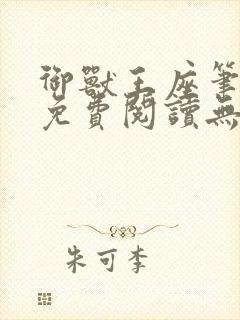 御獸王座筆
免費閱讀無
朱可李